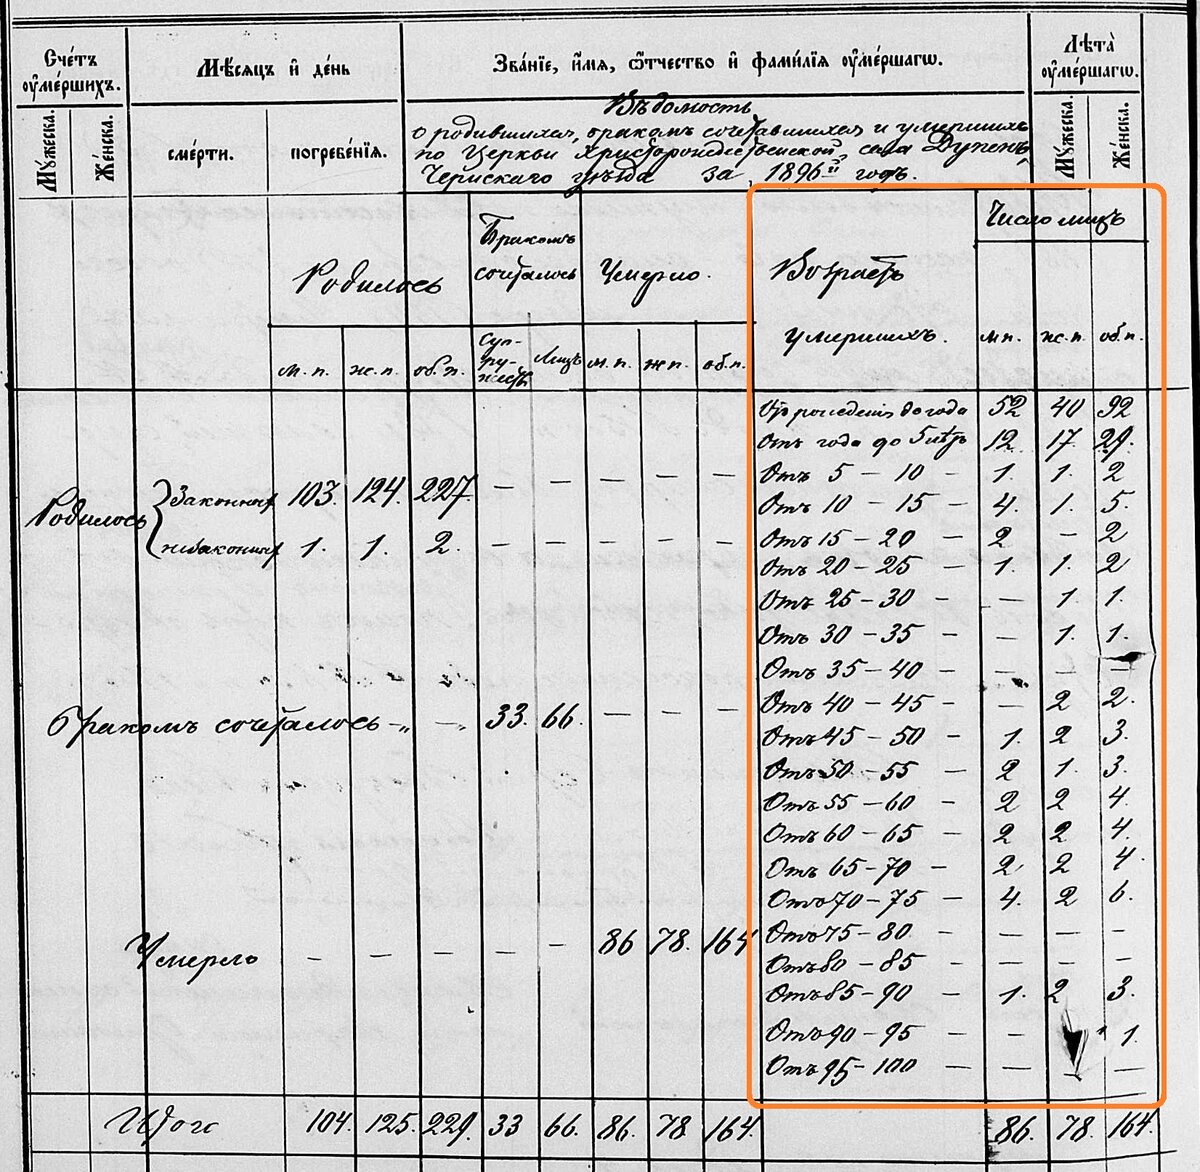 Счетъ ѹмершихъ. Мѣсяцъ и день Званїе, имя, ѿтчество и фамилїя ѹмершагѡ. Лѣта ѹмершагѡ.
Мужеска. Женска. смерти. погребенїя. Мужеска. Женска.
Вѣдомость
о родившихся, бракомъ сочетавшихся и умершихъ
по Церкви Христорождественской, села Дупенъ
Чернскаго уѣзда за 1896й годъ.
Родилось Бракомъ сочеталось Умерло. Возрастъ умершихъ. Число лицъ
м. п. ж. п. об. п. Суп-ру-жествъ Лицъ м. п. ж п. об. п. м п. ж. п. об. п.
Отъ рожденія до года 52 40 92
Отъ года до 5 лѣтъ 12. 17. 29.
Отъ 5 — 10 — 1. 1. 2
Родилось Законныхъ 103. 124. 227. — — — — —
Отъ 10 — 15 — 4. 1. 5.
Отъ 15 — 20 — 2 — 2
незаконныхъ 1. 1. 2. — — — — —
Отъ 20 — 25 — 1. 1. 2
Отъ 25 — 30 — — 1. 1.
Отъ 30 — 35 — — 1. 1.
Отъ 35 — 40 — — — —
Отъ 40 — 45 — — 2 2.
Бракомъ сочеталось — „ — „ 33. 66. — — —
Отъ 45 — 50 — 1. 2 3.
Отъ 50 — 55 — 2 1. 3.
Отъ 55 — 60 — 2 2 4.
Отъ 60 — 65 — 2 2 4.
Отъ 65 — 70 — 2. 2 4.
Отъ 70 — 75 — 4. 2 6.
Умерло — — — — — 86 78. 164
Отъ 75 — 80 — — — —
Отъ 80 — 85 — — — —
Отъ 85 — 90 — 1. 2 3.
Отъ 90 — 95 — — 1.
Отъ 95 — 100 — — — —
Итого 104. 125. 229. 33 66. 86. 78 164. 86. 78. 164.